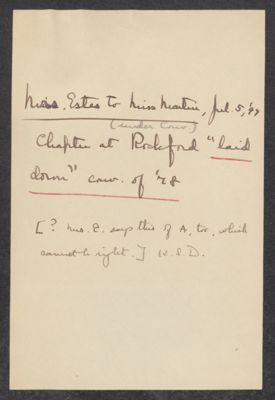 Mrs. Estes to Miss Martin, Jul. 5, '97
(under Conv.)
Chapter at Rockford "laid
down" conv. of '78
[? Mrs. E. says this of A, too, which
cannot b right.] N.S.D.